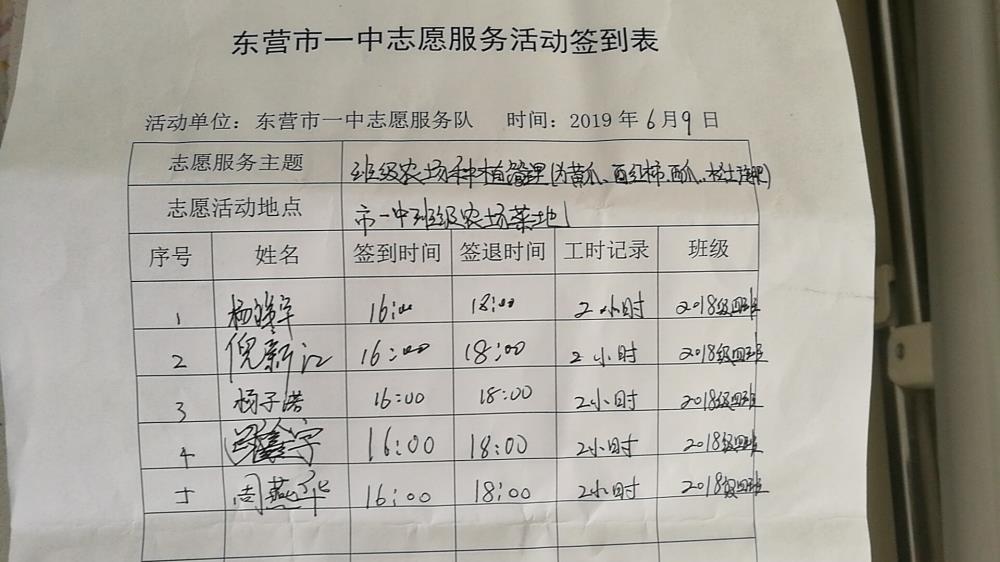 东营市一中志愿服务活动签到表
活动单位：东营市一中志愿服务队 时间：2019年6月9日
志愿服务主题 班级农场种植管理(为黄瓜、西红柿、西瓜、松土施肥)
志愿活动地点 市一中班级农场菜地
序号 姓名 签到时间 签退时间 工时记录 班级
1 杨 16:00 18:00 2小时 2018级四班
2 倪新江 16:00 18:00 2小时 2018级四班
3 杨子浩 16:00 18:00 2小时 2018级四班
4 鑫宇 16:00 18:00 2小时 2018级四班
5 周燕华 16:00 18:00 2小时 2018级四班